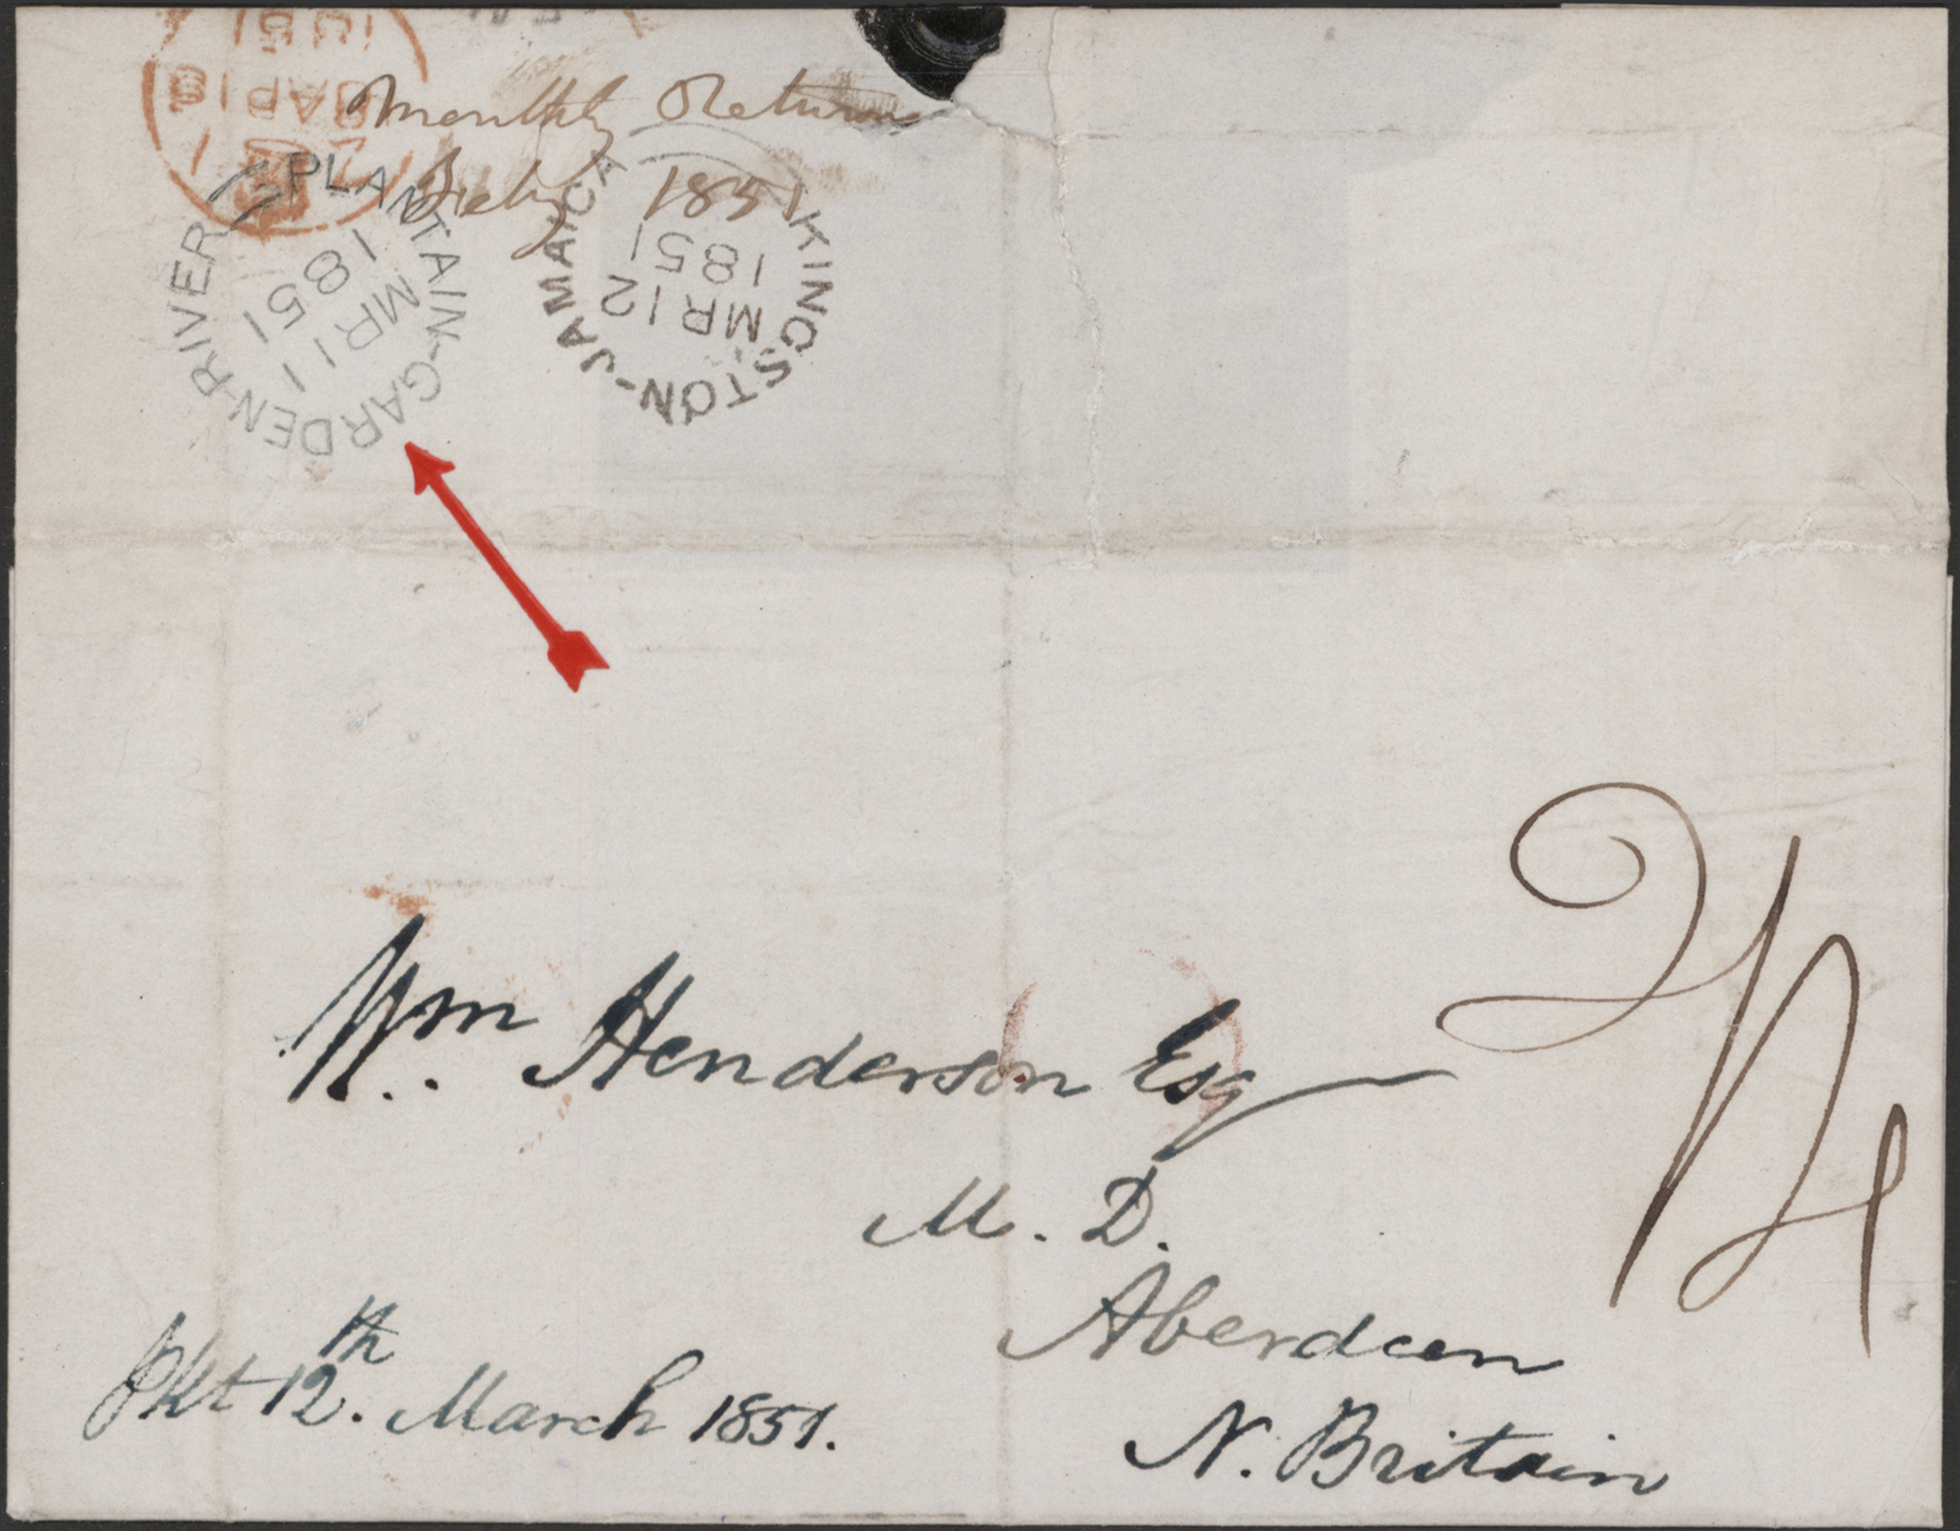 Monthly Returns
Feby 1851
PLANTAIN-GARDEN-RIVER
MR 11
1851
KINGSTON-JAMAICA
MR 12
1851
Wm. Henderson Esq
M. D.
Aberdeen
N. Britain
Pkt 12th. March 1851.